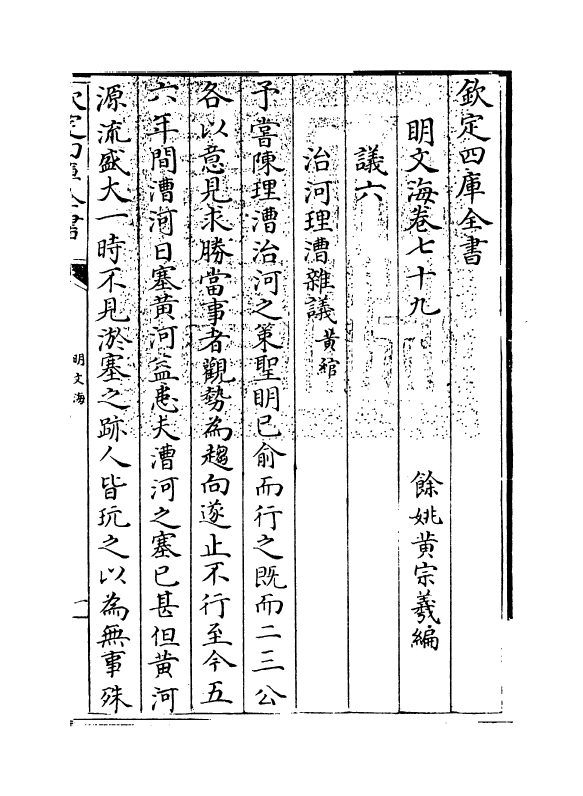 欽定四庫全書
明文海卷七十九
餘姚黄宗羲編
議六
治河理漕雜議黄綰
予嘗陳理漕治河之策聖明已俞而行之既而二三公
各以意見求勝當事者觀勢為趨向遂止不行至今五
六年間漕河日塞黄河益患夫漕河之塞已甚但黄河
源流盛大一時不見淤塞之跡人皆玩之以為無事殊
欽定四庫全書
明文海
一